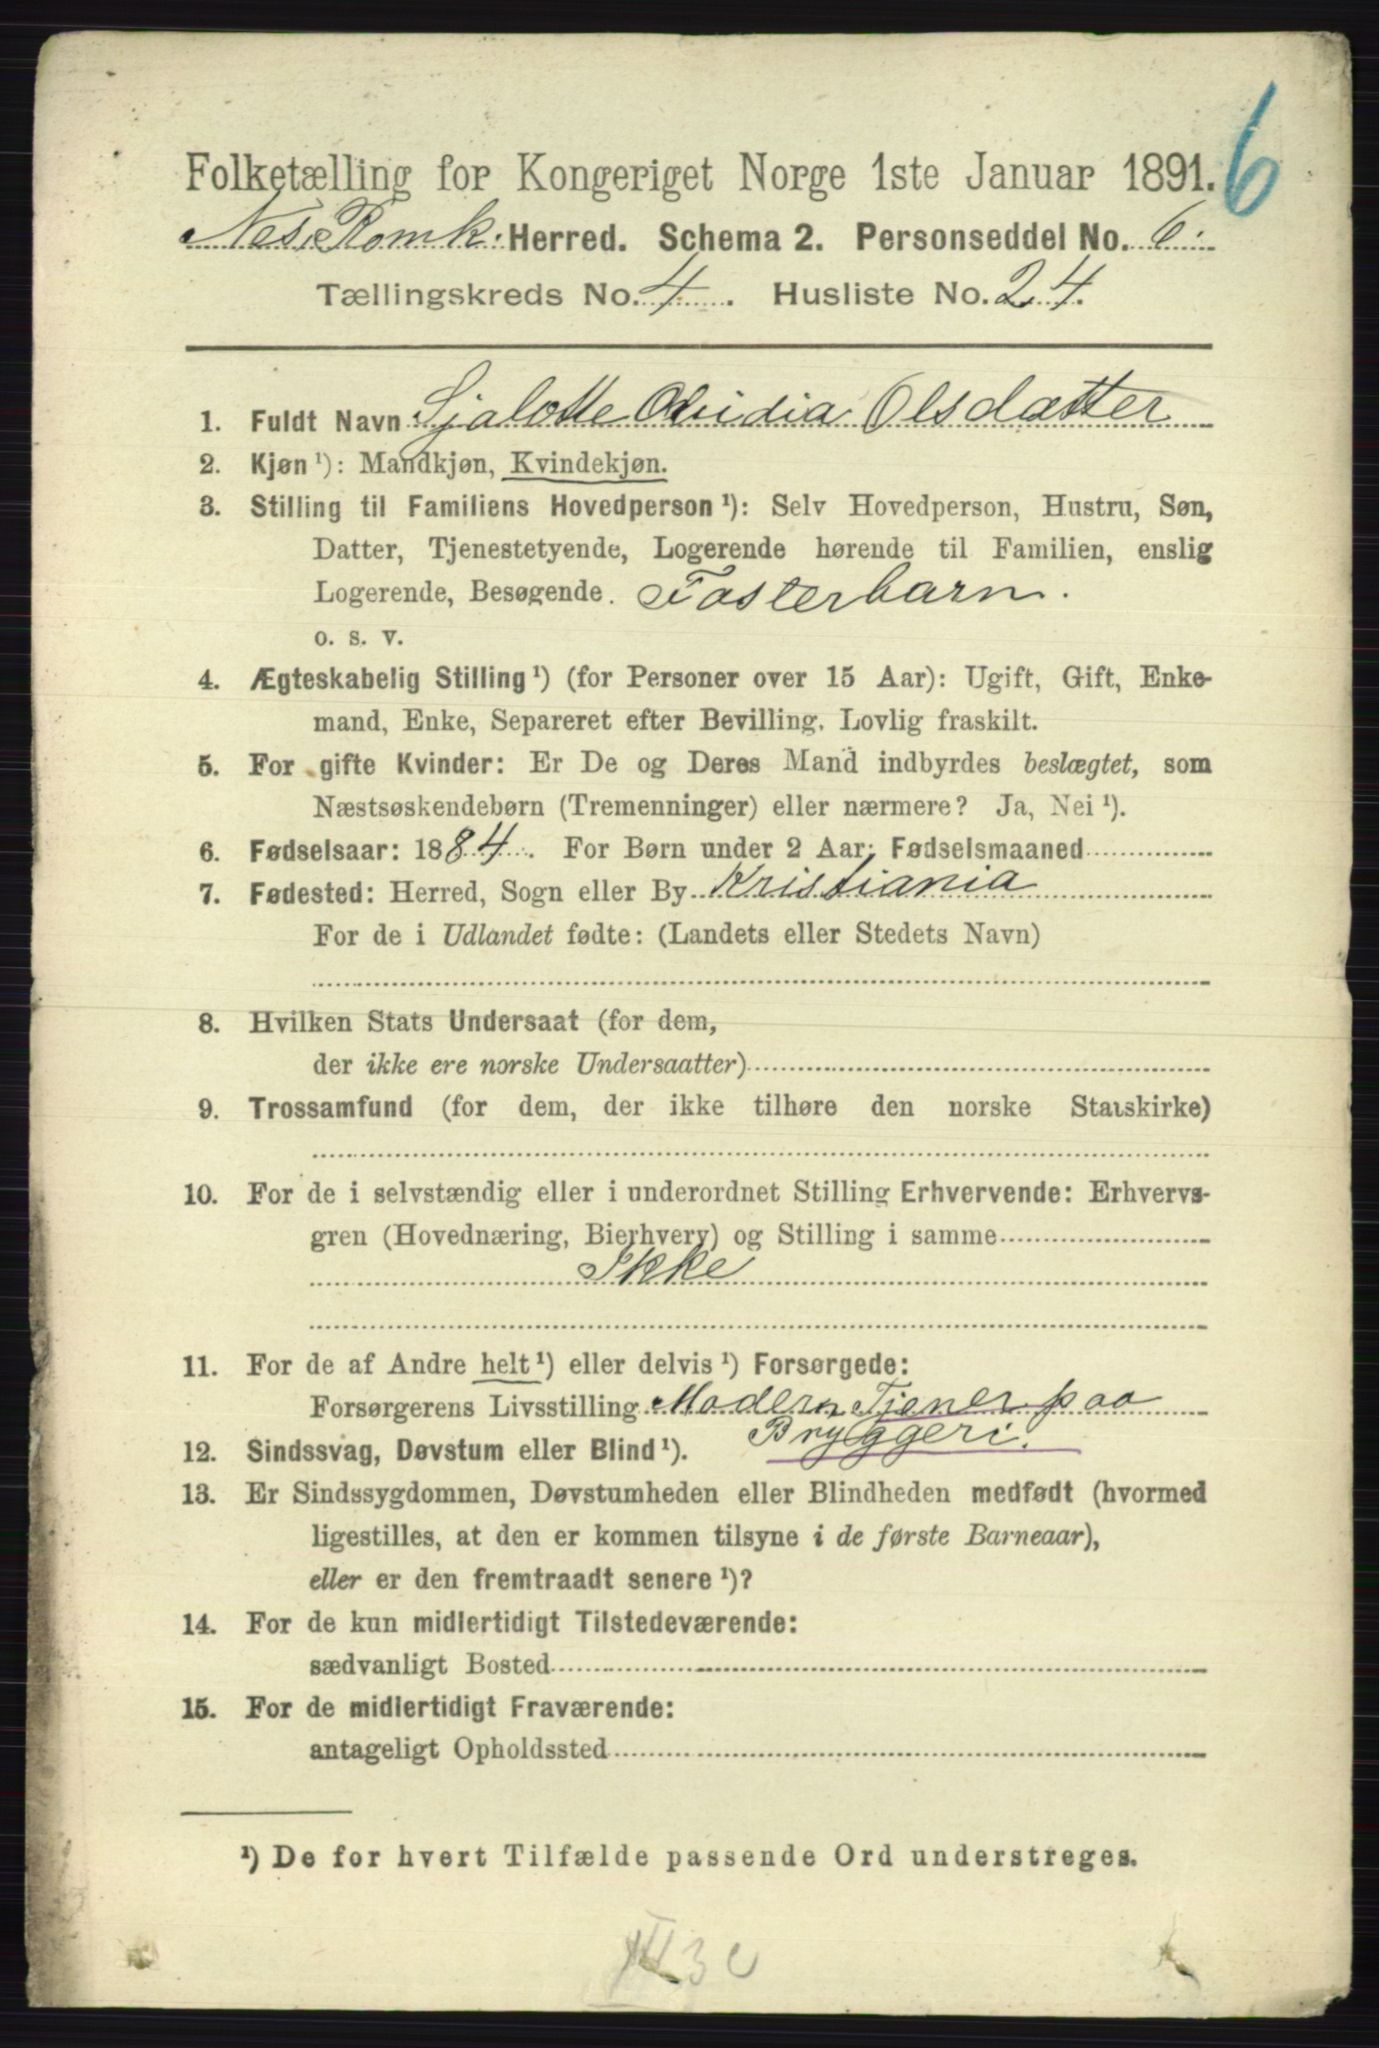 6
Folketælling for Kongeriget Norge 1ste Januar 1891.
Nes. Romk. Herred. Schema 2. Personseddel No. 6.
Tællingskreds No. 4. Husliste No. 24.
1. Fuldt Navn Sjalotte Olsdatter
2. Kjøn ¹): Mandkjøn, Kvindekjøn.
3. Stilling til Familiens Hovedperson ¹): Selv Hovedperson, Hustru, Søn,
Datter, Tjenestetyende, Logerende hørende til Familien, enslig
Logerende, Besøgende. Fosterbarn.
o. s. v.
4. Ægteskabelig Stilling ¹) (for Personer over 15 Aar): Ugift, Gift, Enke-
mand, Enke, Separeret efter Bevilling, Lovlig fraskilt.
5. For gifte Kvinder: Er De og Deres Mand indbyrdes beslægtet, som
Næstsøskendebørn (Tremenninger) eller nærmere? Ja, Nei ¹).
6. Fødselsaar: 1884. For Børn under 2 Aar: Fødselsmaaned
7. Fødested: Herred, Sogn eller By Kristiania
For de i Udlandet fødte: (Landets eller Stedets Navn)
8. Hvilken Stats Undersaat (for dem,
der ikke ere norske Undersaatter)
9. Trossamfund (for dem, der ikke tilhøre den norske Statskirke)
10. For de i selvstændig eller i underordnet Stilling Erhvervende: Erhvervs-
gren (Hovednæring, Bierhverv) og Stilling i samme
Ikke
11. For de af Andre helt ¹) eller delvis ¹) Forsørgede:
Forsørgerens Livsstilling Modern Tjener paa
Bryggeri.
12. Sindssvag, Døvstum eller Blind ¹).
13. Er Sindssygdommen, Døvstumheden eller Blindheden medfødt (hvormed
ligestilles, at den er kommen tilsyne i de første Barneaar),
eller er den fremtraadt senere ¹)?
14. For de kun midlertidigt Tilstedeværende:
sædvanligt Bosted
15. For de midlertidigt Fraværende:
antageligt Opholdssted
¹) De for hvert Tilfælde passende Ord understreges.